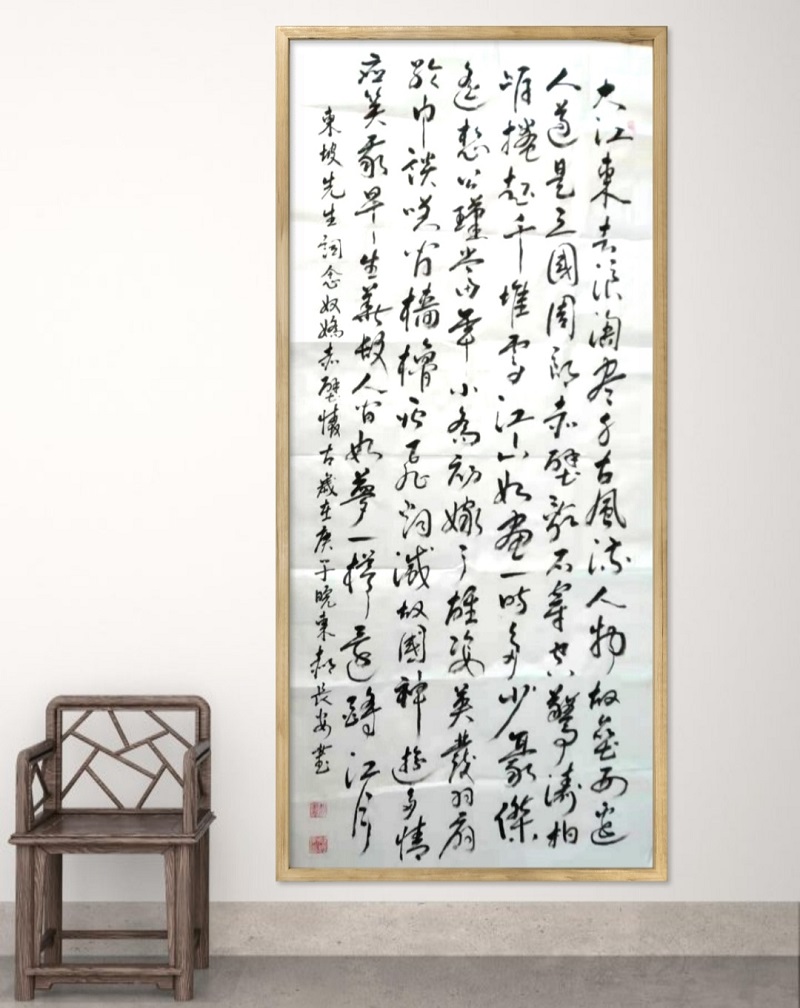 大江東去浪淘尽千古風流人物故壘西邊
人道是三國周郎赤壁亂石穿空驚濤拍
岸捲起千堆雪江山如畫一時多少豪傑
遙想公瑾當年小喬初嫁了雄姿英發羽扇
綸巾談笑間檣櫓灰飛煙滅故國神遊多情
應笑我早生華髮人間如夢一樽還酹江月
東坡先生詞念奴嬌赤壁懷古歲在庚子晚東郝長安書